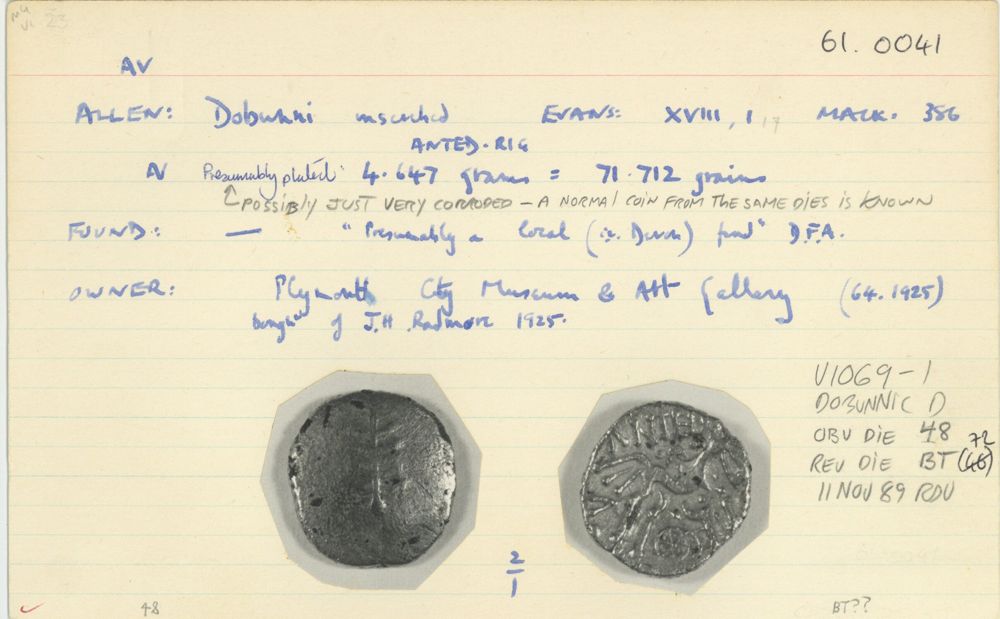 23
61. 0041
AV
ALLEN: Dobunni inscribed EVANS: XVIII, 1 17 MACK. 386
ANTED.RIG
N Presumably plated 4.647 grams = 71.712 grains
POSSIBLY JUST VERY CORRODED - A NORMAL COIN FROM THE SAME DIES IS KNOWN
FOUND: — "Presumably a local (i.e. Devon) find" D.F.A.
OWNER: Plymouth City Museum & Art Gallery (64.1925)
bought of J.H. Radmore 1925.
V1069-1
DOBUNNIC D
OBV DIE 48
72
REV DIE BT (46)
11 NOV 89 RDV
2
1
48
BT??